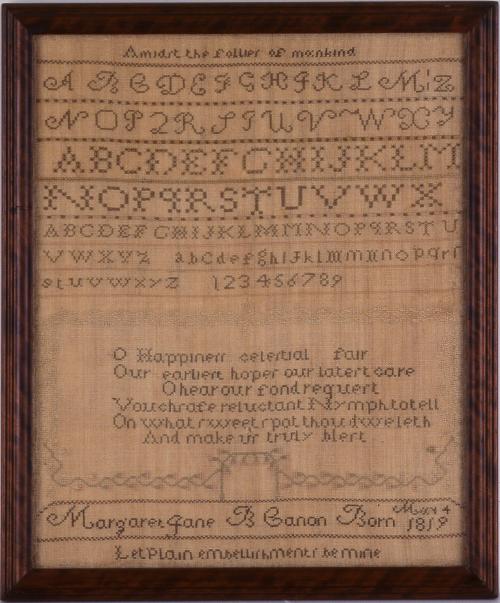 Amidst the follies of mankind
A B C D E F G H I K L M z
N O P Q R S T U V W X Y
A B C D E F G H I J K L M
N O P Q R S T U V W X
A B C D E F G H I J K L M N O P Q R S T U
V W X Y Z a b c d e f g h i J k l m n o p q r ſ
s t u v w x y z 1 2 3 4 5 6 7 8 9
O Happineſſ celestial fair
Our earlieſt hopeſ our lateſt care
O hear our fond requeſt
Vouchſafe reluctant Nymph to tell
On what ſweet ſpot thou dwelleth
And make uſ truly bleſt
Margaret Jane B Canon Born May 4 1819
Let Plain embelliſhmentſ be mine